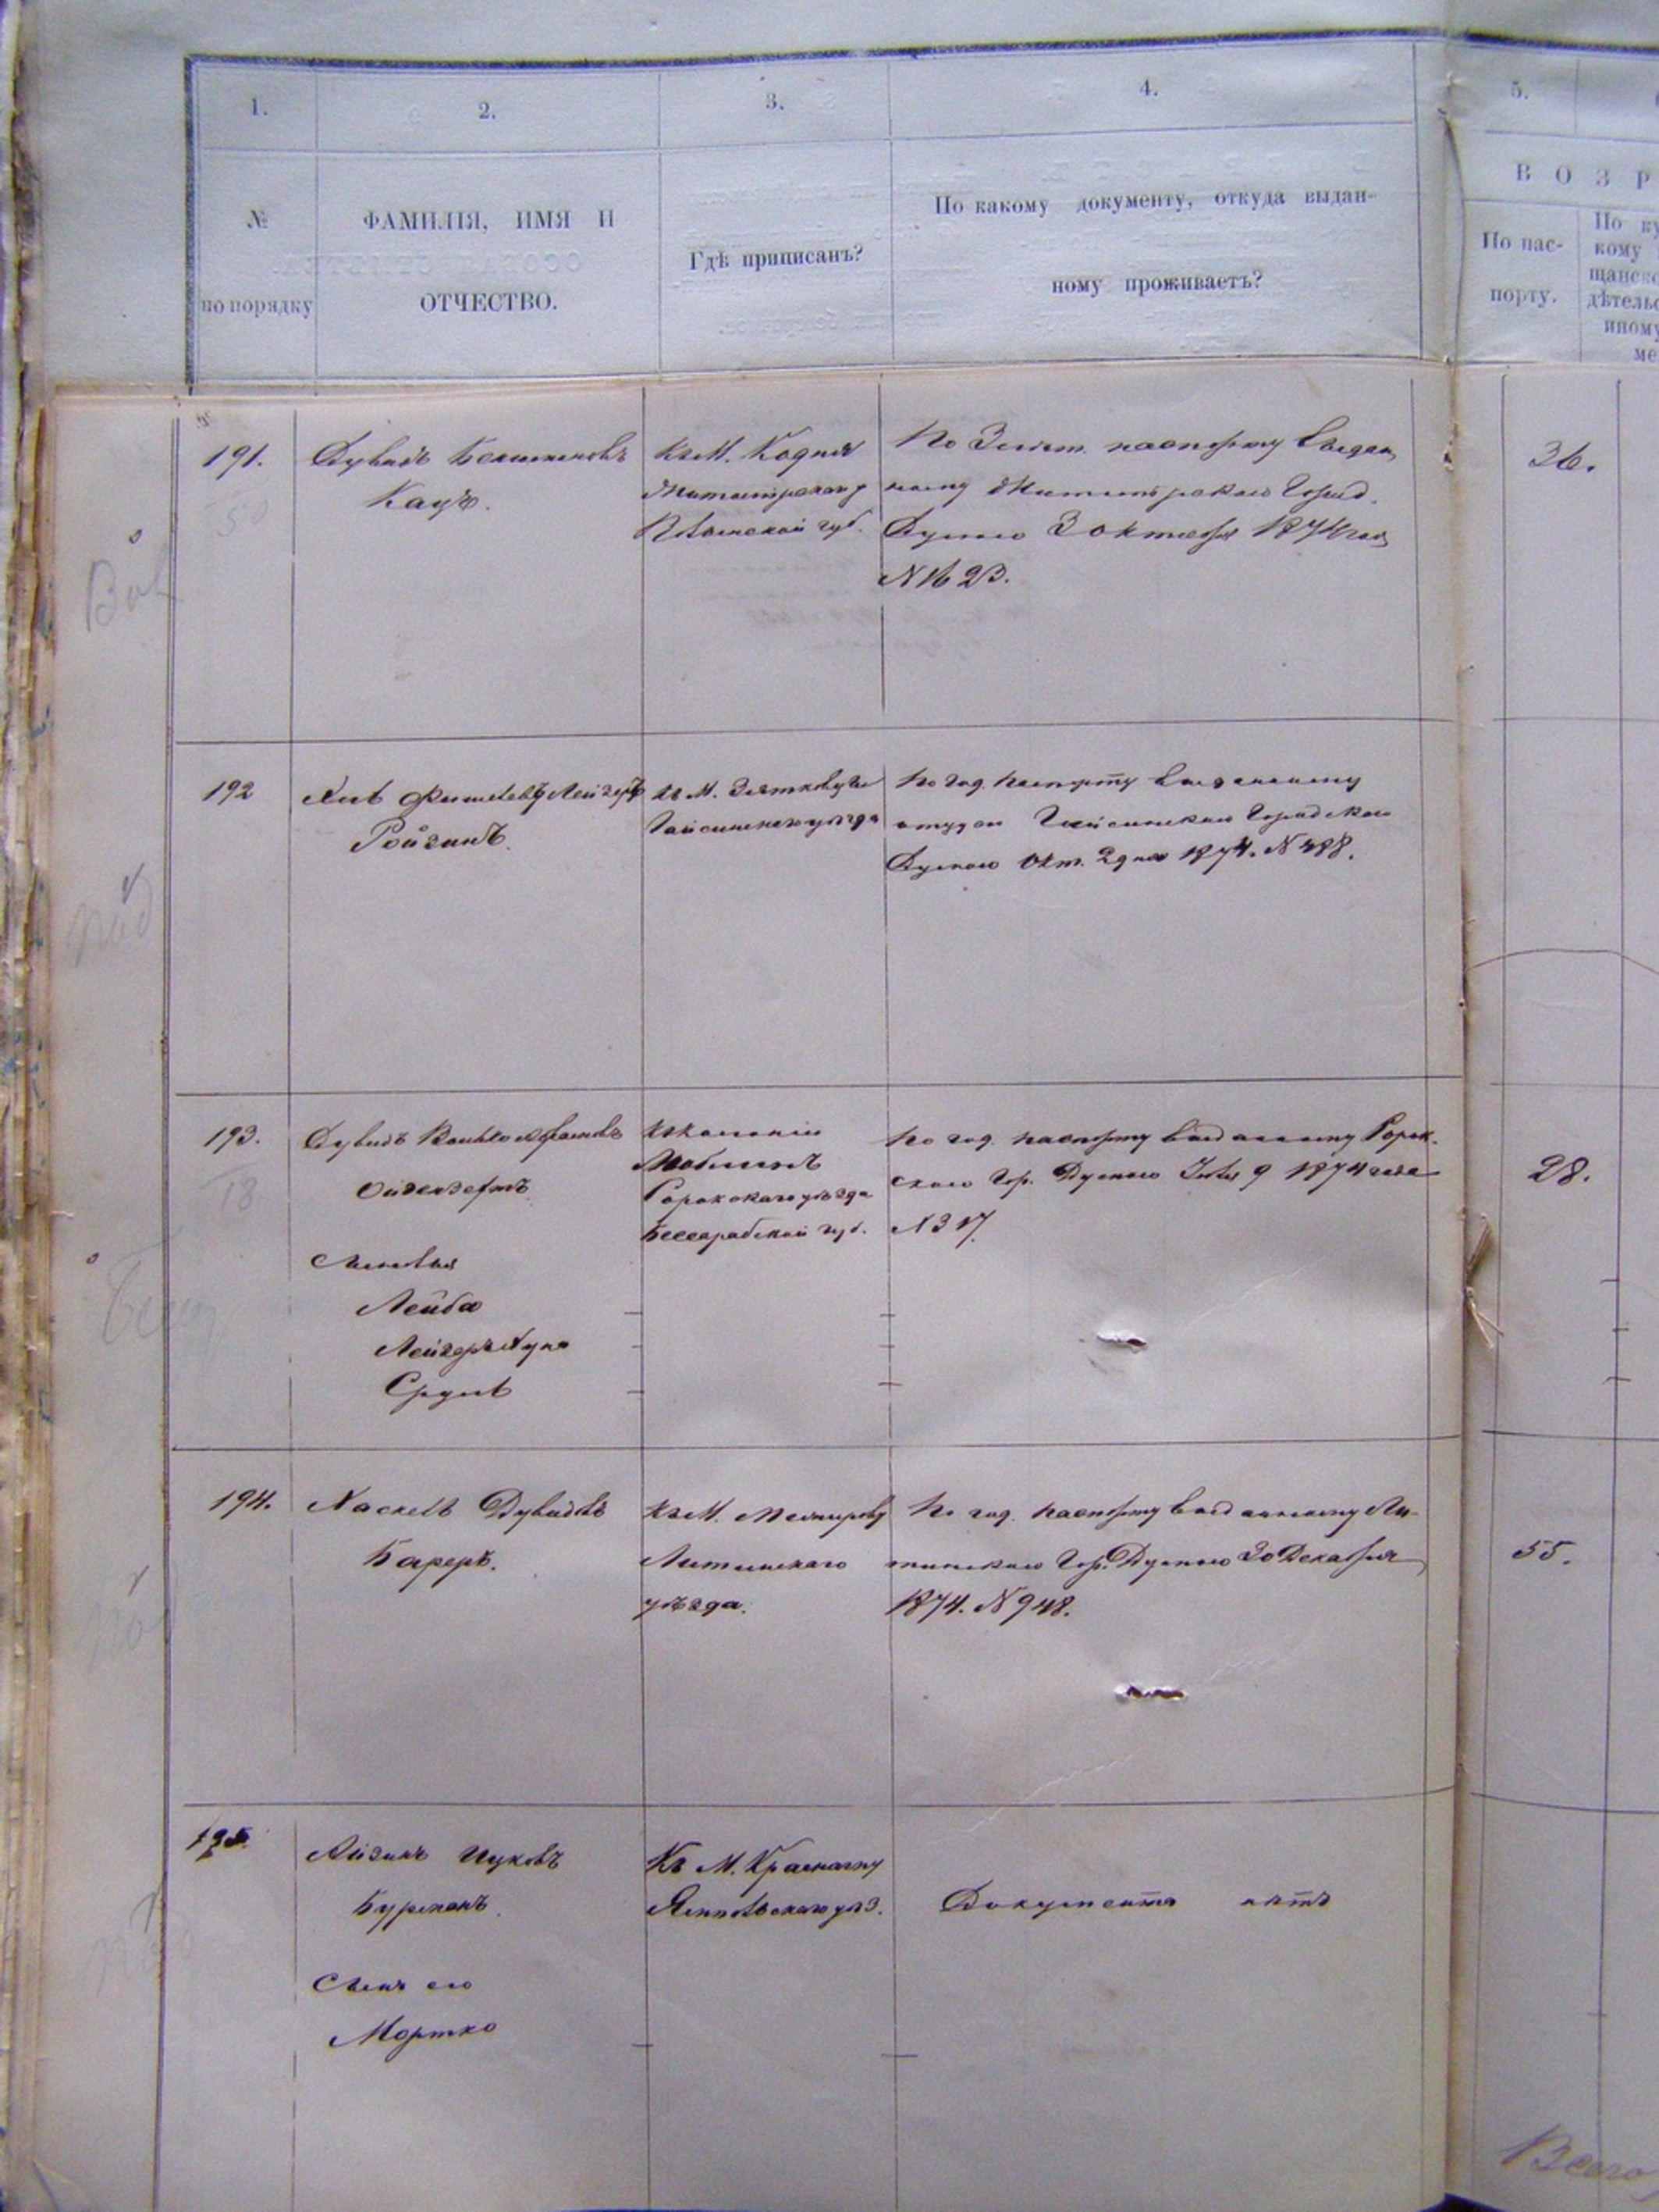 1.
2.
3.
4.
5.
№
по порядку
ФАМИЛІЯ, ИМЯ И
ОТЧЕСТВО.
Гдѣ приписанъ?
По какому документу, откуда выдан-
ному проживаетъ?
ВОЗР
По пас-
порту.
По ку
кому
щанско
дѣтельс
иному
ме
191.
Дувидъ
Кацъ.
Къ М. Кодня
Житомірскаго у
Волынской губ.
По 3 мѣст. паспорту выдан
ному Житомірскою Город.
Думою 3 октября 1874 года
№ 1623.
36.
192
Ройзинъ.
къ М. Зятковцы
Гайсинскаго уѣзда
По год. паспорту выданному
оттуда Гайсинскою Городскою
Думою Окт. 29 дня 1874. № 488.
193.
18
Дувидъ
Ойзензафтъ
Сыновья
Лейба
Лейзеръ Нута
Сруль
къ колоніи
Люблинъ
Сорокскаго уѣзда
Бессарабской губ.
По год. паспорту выданному Сорок-
скою Гор. Думою Іюля 9 1874 года
№ 317.
28.
194.
Хаскель Дувидовъ
Бареръ.
Къ М.
Литинскаго
уѣзда.
По год. паспорту выданному Ли-
тинскою Гор. Думою 30 Декабря
1874. № 948.
55.
195.
Айзикъ Ицковъ
Бурманъ.
Сынъ его
Мортко
Къ М. Красному
Ямпольскаго уѣз.
Документа нѣтъ
Всего